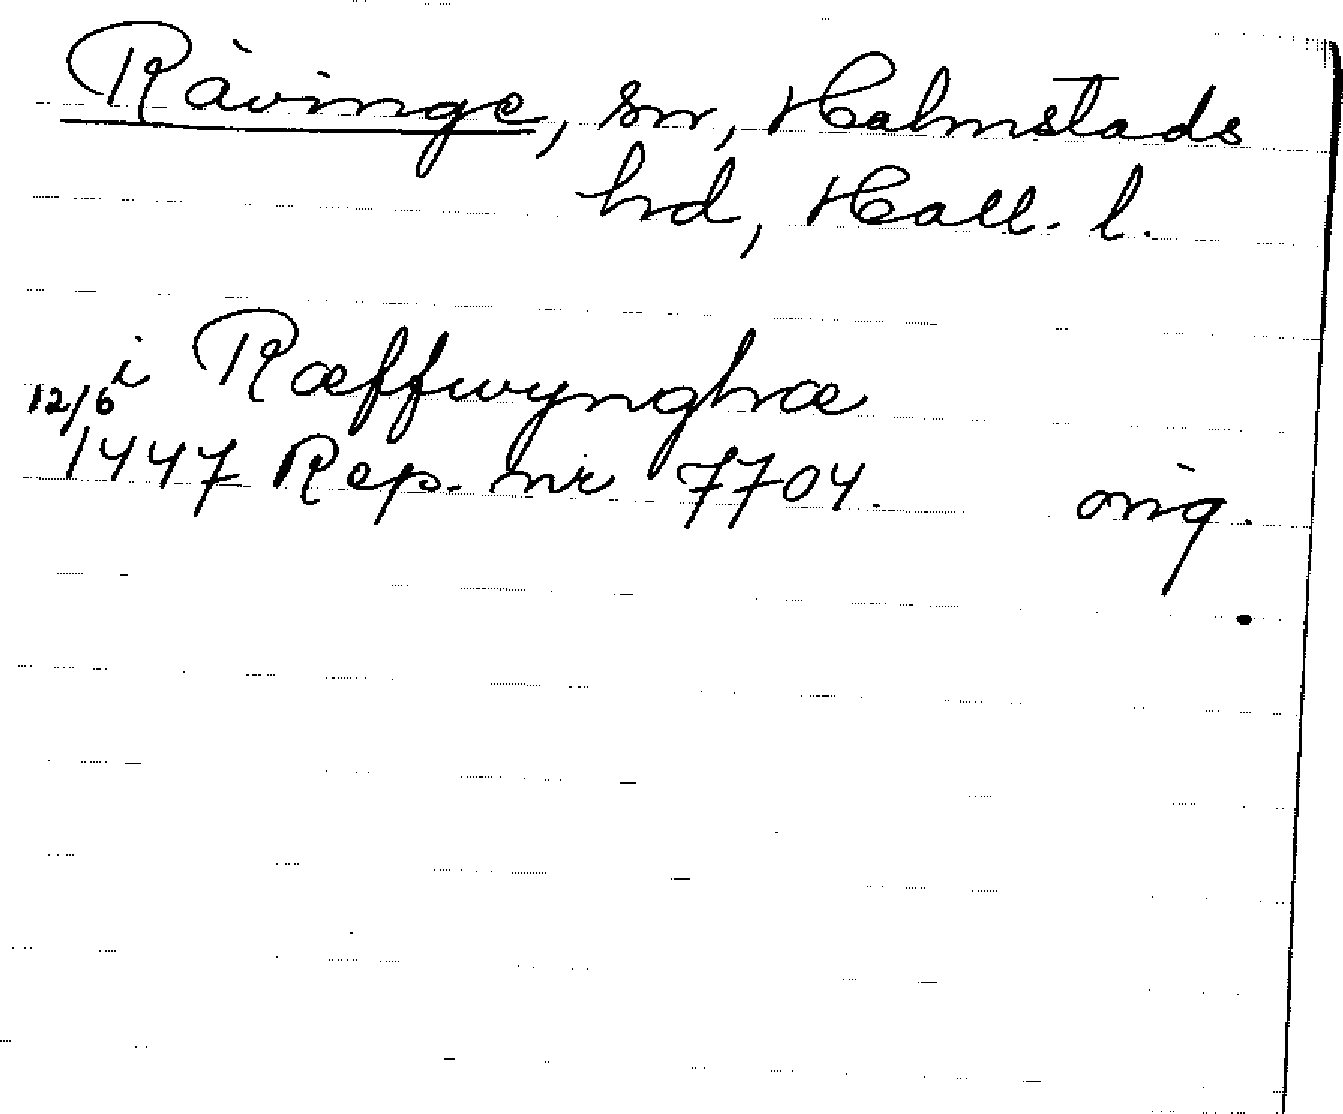 Rävinge, sn, Halmstads
hd, Hall. l.
i Ræffwynghæ
12/6
1447 Rep. nr 7704. orig.